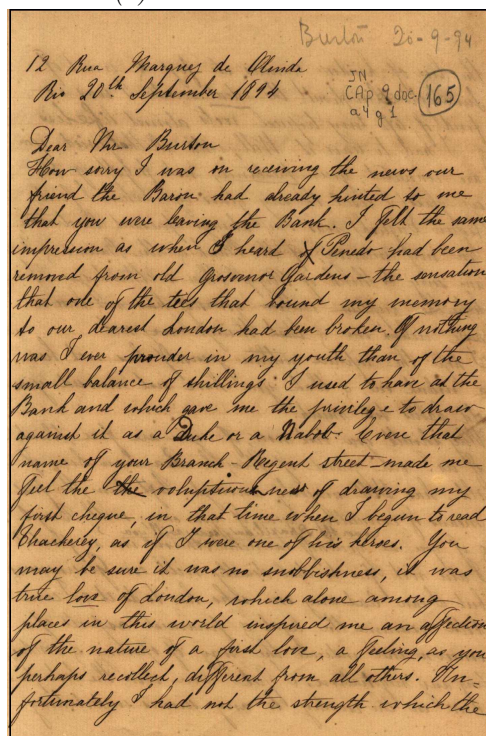 Burton 20-9-94
JN
CAp 9 doc.
a4 g1
165
12 Rua Marquez de Olinda
Rio 20th September 1894
Dear Mr Burton
How sorry I was on receiving the news our
friend the Baron had already hinted to me
that you were leaving the Bank. I felt the same
impression as when I heard of Penedo had been
removed from old Grosvenor Gardens – the sensation
that one of the ties that bound my memory
to our dearest London had been broken. Of nothing
was I ever prouder in my youth than of the
small balance of shillings I used to have at the
Bank and which gave me the privilege to draw
against it as a Duke or a Nabob. Even that
name of your Branch – Regent street – made me
feel the the voluptiousness of drawing my
first cheque, in that time when I began to read
Thackerey, as if I were one of his heroes. You
may be sure it was no snobbishness, it was
true love of London, which alone among
places in this world inspired me an affection
of the nature of a first love, a feeling, as you
perhaps recollect, different from all others. Un-
fortunately I had not the strength which the